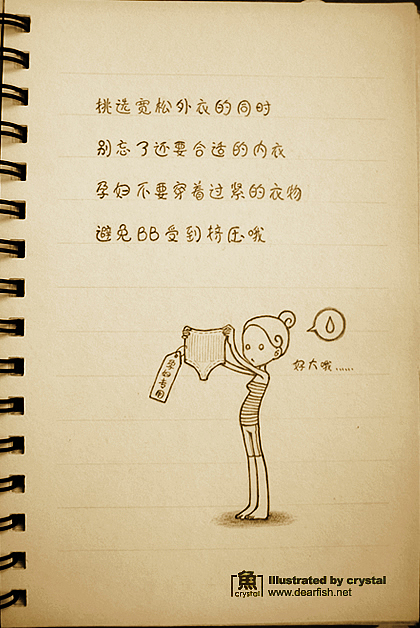 挑选宽松外衣的同时
别忘了还要合适的内衣
孕妇不要穿着过紧的衣物
避免BB受到挤压哦
孕妇专用
好大哦......
魚
crystal
Illustrated by crystal
www.dearfish.net